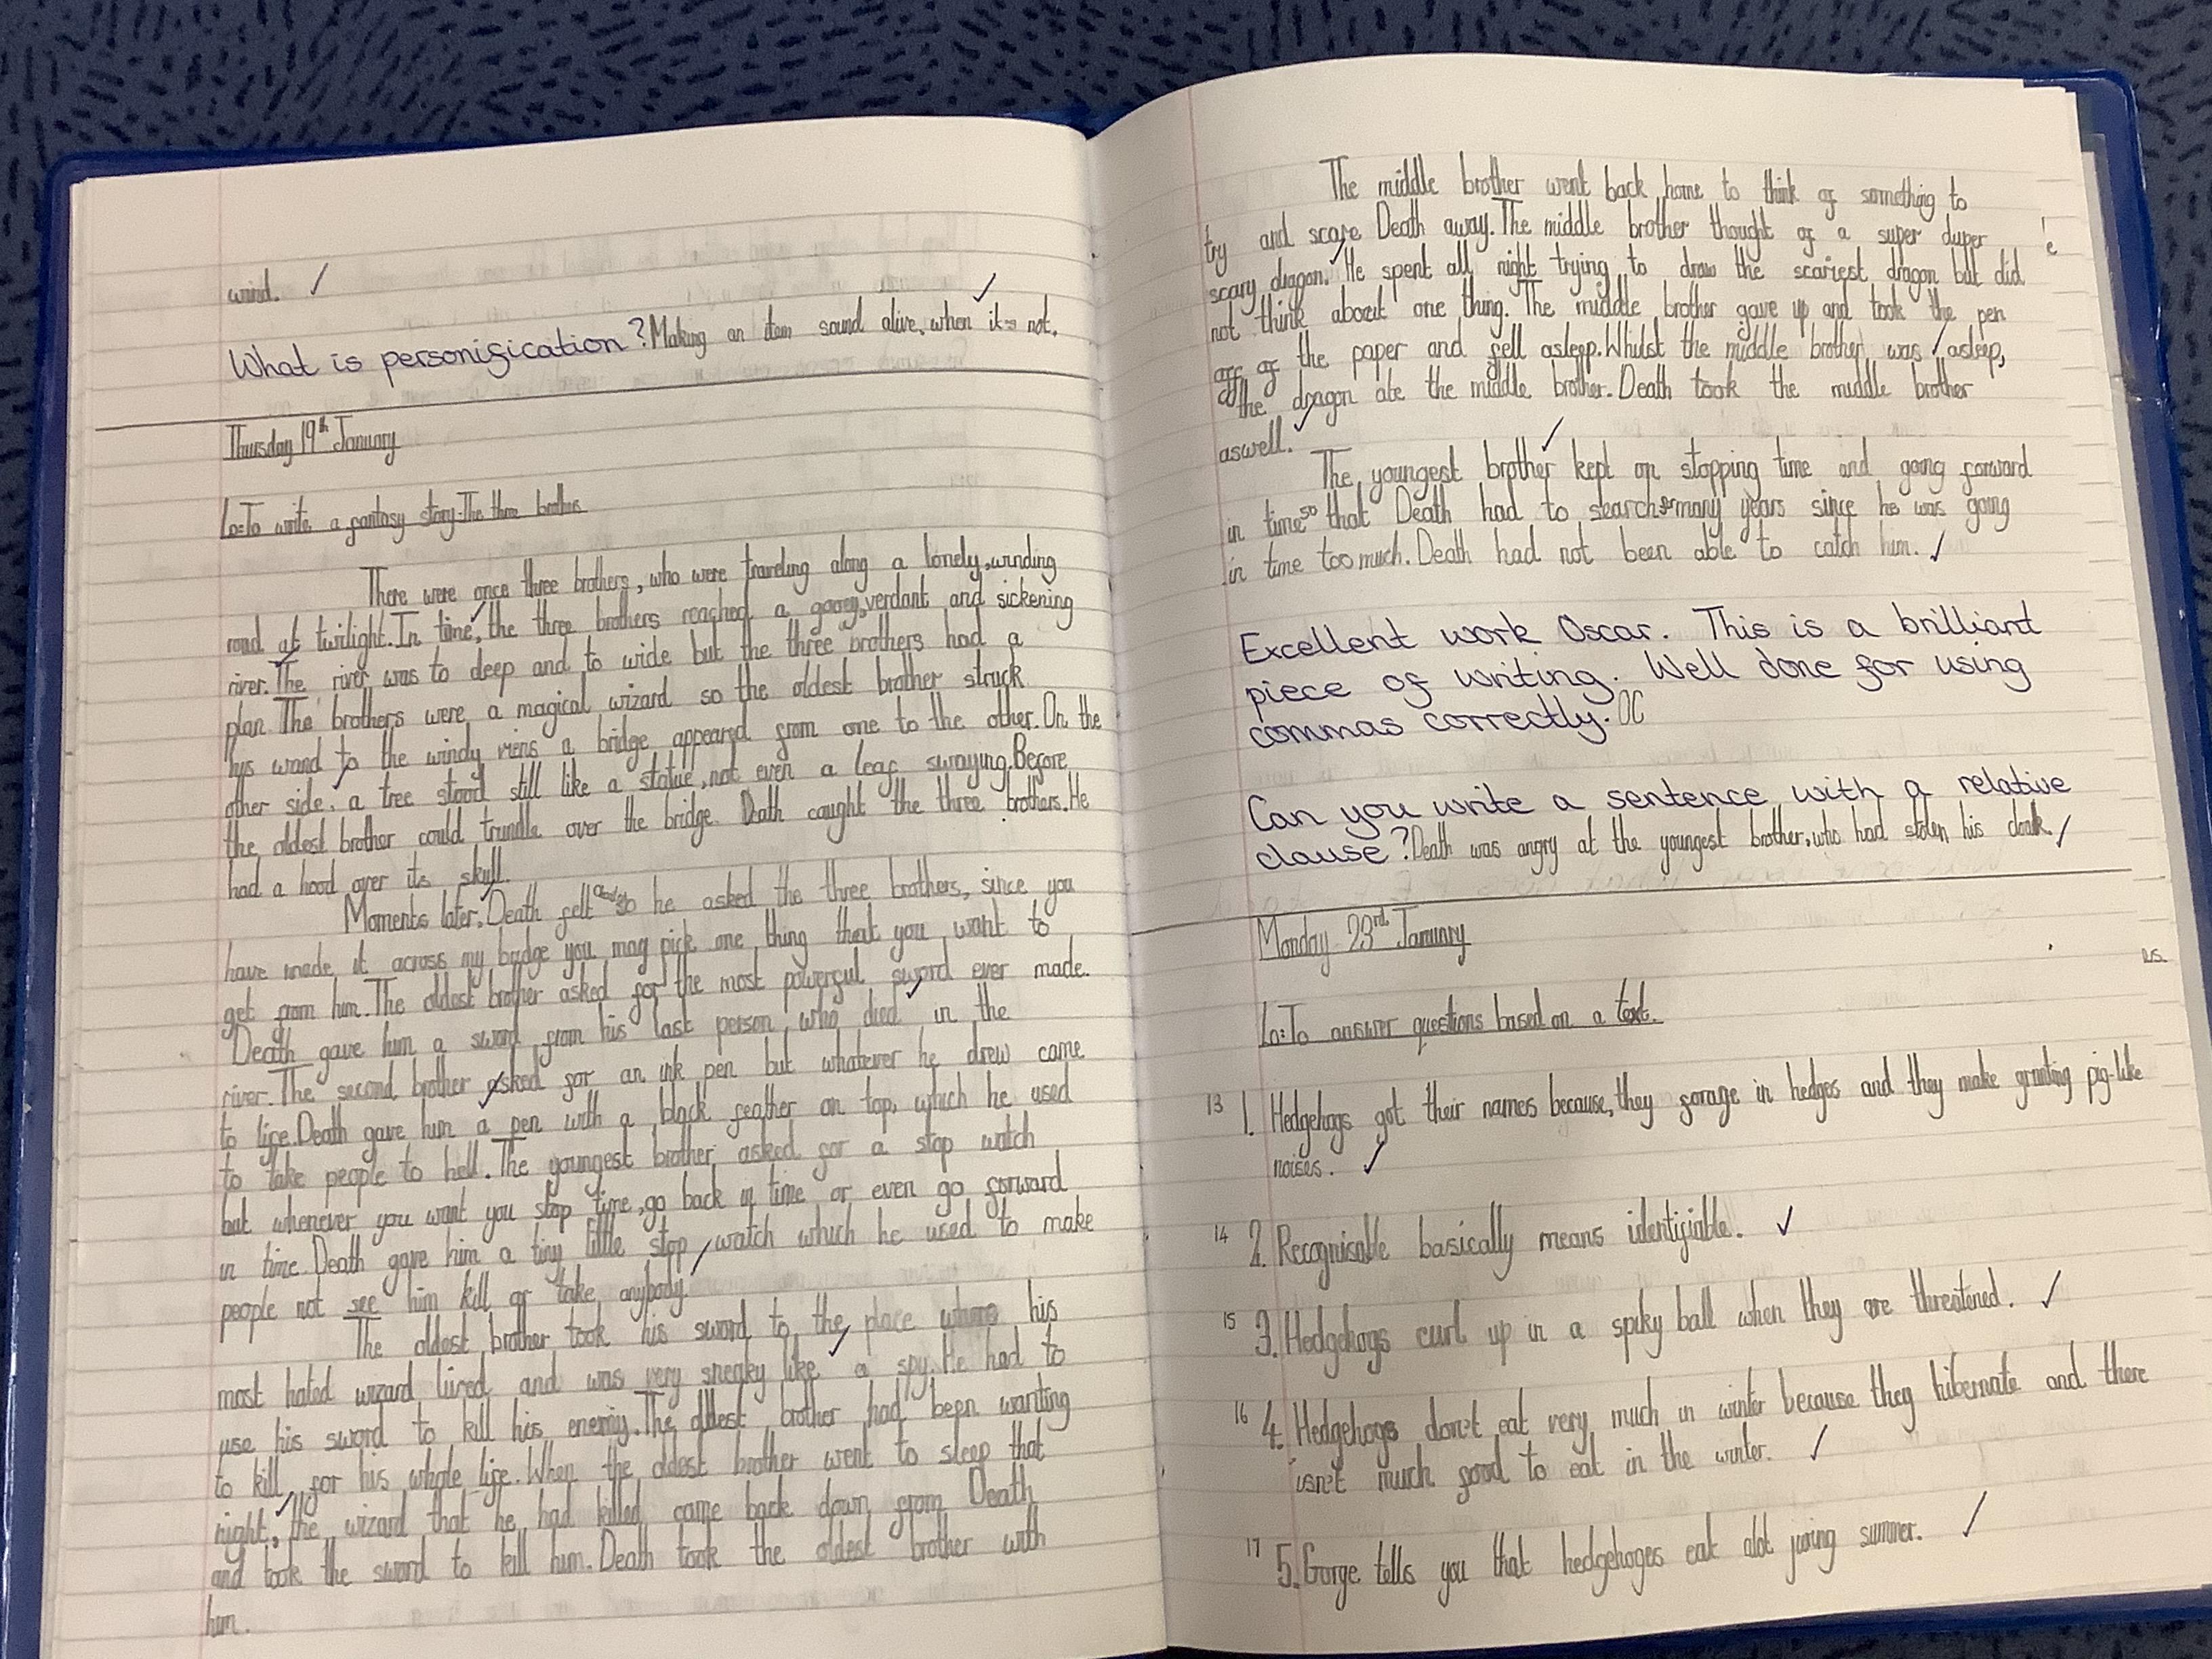 wind.
What is personification? Making an item sound alive, when it's not.
Thursday 19th January
Lo:To write a fantasy story-The three brothers
There were once three brothers, who were traveling along a lonely, winding
road at twilight. In time, the three brothers reached a gooey, verdant and sickening
river. The river was to deep and to wide but the three brothers had a
plan. The brothers were a magical wizard so the oldest brother struck
his wand to the windy a bridge appeared from one to the other. On the
other side, a tree stood still like a statue, not even a leaf swaying. Before
the oldest brother could trundle over the bridge. Death caught the three brothers. He
had a hood over its skull.
Moments later, Death felt so he asked the three brothers, since you
have made it across my bridge you may pick one thing that you want to
get from him. The oldest brother asked for the most powerful sword ever made.
Death gave him a sword from his last person who died in the
river. The second brother asked for an ink pen but whatever he drew came
to life. Death gave him a pen with a black feather on top, which he used
to take people to hell. The youngest brother asked for a stop watch
but whenever you want you stop time, go back in time or even go forward
in time. Death gave him a tiny little stop watch which he used to make
people not see him kill or take anybody.
The oldest brother took his sword to the place where his
most hated wizard lived and was very sneaky like a spy. He had to
use his sword to kill his enemy. The oldest brother had been wanting
to kill for his whole life. When the oldest brother went to sleep that
night, the wizard that he had killed came back down from Death
and took the sword to kill him. Death took the oldest brother with
him.
The middle brother went back home to think of something to
try and scare Death away. The middle brother thought of a super duper
scary dragon. He spent all night trying to draw the scariest dragon but did
not think about one thing. The middle brother gave up and took the pen
off of the paper and fell asleep. Whilst the middle brother was asleep,
the dragon ate the middle brother. Death took the middle brother
aswell.
The youngest brother kept on stopping time and going forward
in time so that Death had to search many years since he was going
in time too much. Death had not been able to catch him.
Excellent work Oscar. This is a brilliant
piece of writing. Well done for using
commas correctly. OC
Can you write a sentence with a relative
clause? Death was angry at the youngest brother, who had stolen his cloak.
Monday 23rd January
Lo:To answer questions based on a text.
13 1. Hedgehogs got their names because, they forage in hedges and they make grunting pig-like
noises.
14 2. Recognisable basically means identifiable.
15 3. Hedgehogs curl up in a spiky ball when they are threatened.
16 4. Hedgehogs don't eat very much in winter because they hibernate and there
isn't much food to eat in the winter.
17 5. Gorge tells you that hedgehoges eat alot juring summer.